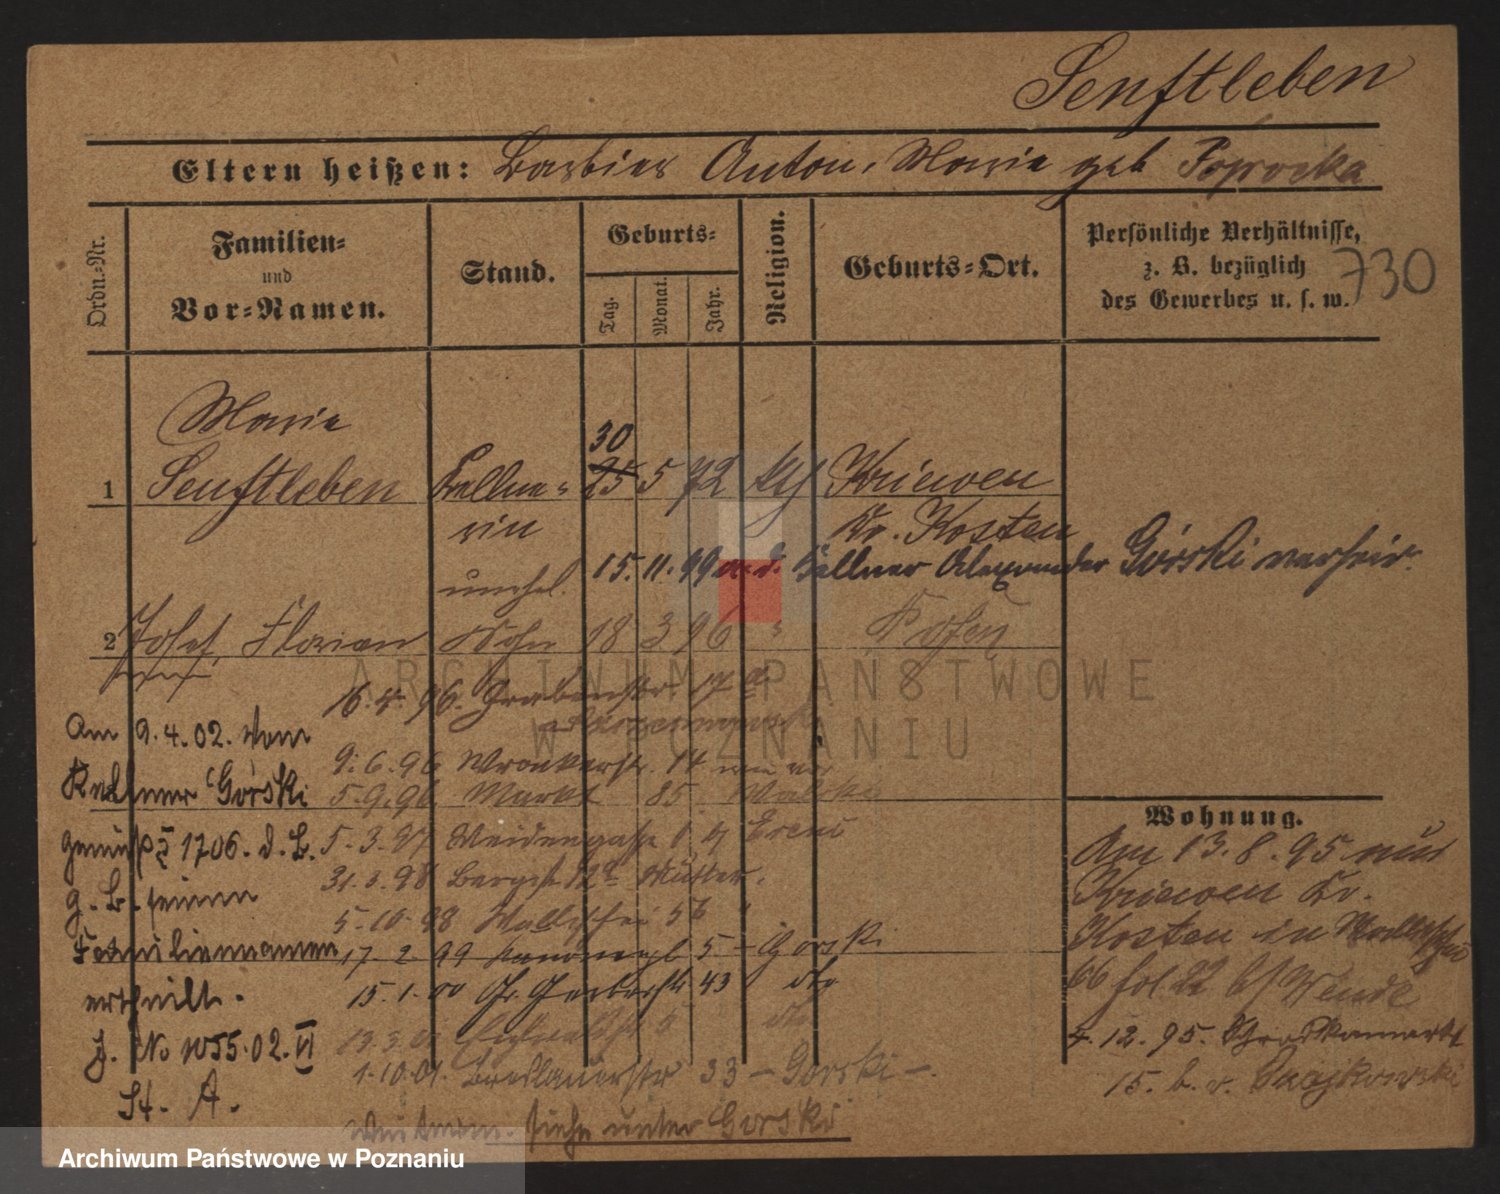 Senftleben
Eltern heißen: Barbier Anton, Marie geb Poprocka
Ordn.-Nr.
Familien-
und
Vor-Namen.
Stand.
Geburts-
Tag.
Monat.
Jahr.
Religion.
Geburts-Ort.
Persönliche Verhältnisse,
z. B. bezüglich
des Gewerbes u. s. w.
730
Marie
1 Senftleben Kellne- 30 25 5 72 kth Kriewen
rin Kr. Kosten
15. 11. 99 a. d. Kellner Alexander Górski verheir.
unehel.
2 Josef, Florian Sohn 18 3 96 " Posen
16. 4. 96. Grabenstr. 17
9. 6. 96 Wronkerstr. 14
5. 9. 96 Markt 85
5. 3. 97 Weidengasse
31. 3. 98 Bergstr. 12 Müller.
5. 10. 98 Wallischei
17 2. 99 5 - Gorski
15. 1. 00 Gr. Gerberstr 43 dto
dto
1. 10. 01. Breslauerstr 33 - Gorski -.
siehe unter Gorski
Am 9. 4. 02. vom
Kellner Górski
gemäß § 1706. d. B.
g. B. seinen
Familiennamen
ertheilt.
J. No 1055. 02. VI
St. A.
Wohnung.
Am 13. 8. 95 aus
Kriewen Kr.
Kosten in Wallischei
66 fol. 22 b/ Wende
4. 12. 95.
15. b. v.
ARCHIWUM PAŃSTWOWE
W POZNANIU
Archiwum Państwowe w Poznaniu